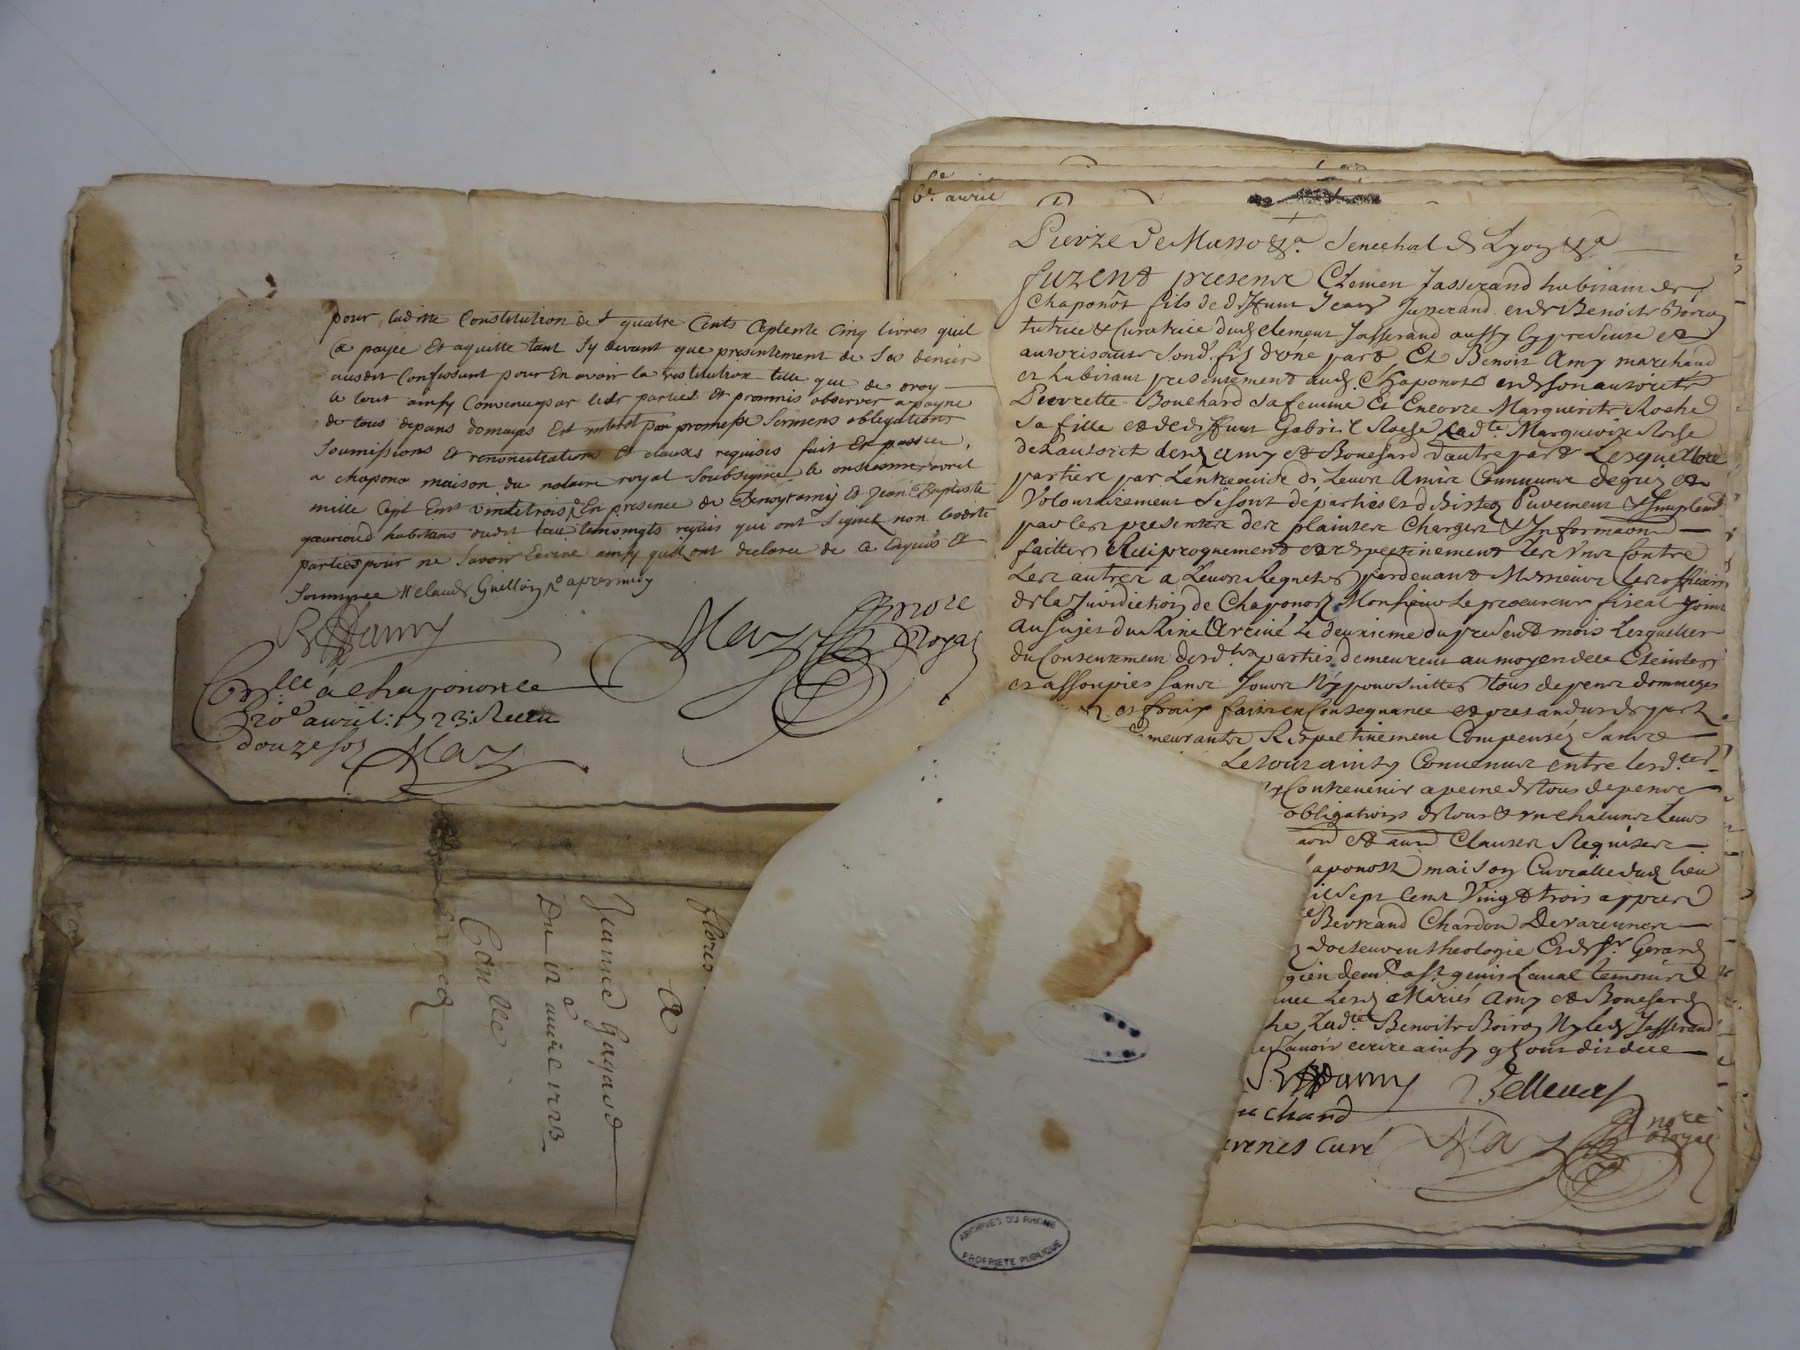 pour laditte Constitution de quatre Cents Septente Cinq livres quil
a payee Et aquitte tant Sy devant que presentement de Ses denier
ausdit Confessant pour En avoir la restitution telle que de droy
le tout ainsy Convenu par lesd parties Et promis observer a payne
de tous depans domages Est interest par promesse Sermens obligations
Soumissions Et renonciations Et clauses requises fait Et passee
a chapono maison du notaire royal Soubsigne le onsiesme avril
mille Sept Cent vingtetrois En presence de Benoy amy Et Jean Baptiste
habitans dudit lieu temoingts requis qui ont Signez non lesditte
parties pour ne Savoir Ecrire ainsy quil ont declare de a Enquis Et
Sommee Claude Guilloin apresmidy
B Damy
Maz nore Royal
Corlle a chaponost le
20e avril 1723 Receu
douze sos Maz
flories
A
Jeanne Gayand
Du 11 avril 1723
Conlle
6e avril
Pierre De Masso &a Senechal de Lyon &a
furent present Clemen Jasserand habitant de
Chaponost fils de deffunt Jean Jasserand et de Benoite Boiron
tutrice & Curatrice dud Clement Jasserand aussy Cy presente et
autorisante Sond. fils d'une part Et Benoit Amy marchand
et habitant presentement aud. Chaponost et de son autorité
Pierrette Bouchard sa femme Et Encore Marguerite Roche
Sa fille et de deffunt Gabriel Roche Ladte Marguerite Roche
de Lautorité desd Amy et Bouchard d'autre part Lesquelles
parties par Lentremise de Leurs Amis Communs de grez et
Volontairement Se sont departies et desistez Purement & Simplement
par les presentes des plaintes Charges & Informaons
faittes Reciproquement et respectivement Les Unes Contre
Les autres a Leurs Requetes pardevant Messieurs les officiers
de la Juridiction de Chaponost Monsieur Le procureur fiscal Joint
Au Sujet du Rixe Arrivé Le deuxieme du present mois Lesquelles
du Consentement desd. parties demeurent au moyen de ce Eteintes
et assoupies sans pouvoir poursuittes tous depens dommages
et frais faits en Consequance et pretandus de part
demeurants Respectivement Compensés Sans
Le tout ainsy Convenus entre lesd.
Contrevenir a peine de tous depens
obligations de tous & un chacuns Leurs
aons et aues Clauses Requises
aponost maison Curialle dud lieu
il Sept Cent Vingt trois appres
Bertrand Chardon Devarennes
docteur en theologie Et de Sr Gerard
gien dem. a St genis Laval temoins
avec Lesd Mariés Amy et Bouchard
he Ladte Benoite Boiron Ny led Jasserand
Scavoir ecrire ainsy quils ont dit de ce
B Damy
Bellevar
u chand
arenes Curé Maz nore Royal
ARCHIVES DU RHONE
PROPRIETE PUBLIQUE